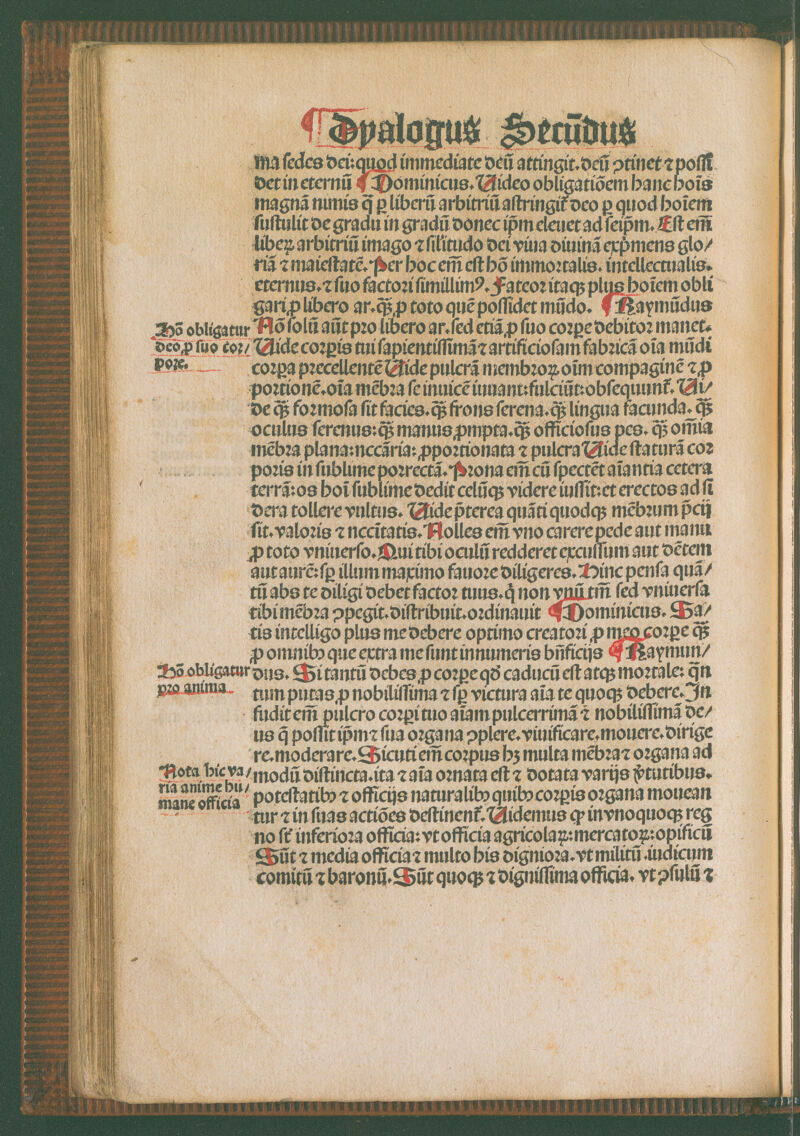 ¶ Dyalogus Secūdus
ma sedes dei: quod immediate deū attingit. deū ꝯtinet ⁊ possi
det in eternū ¶ Dominicus. Uideo obligatiōem hanc hoīs
magnā nimis q̄ ꝑ liberū arbitriū astringit̄ deo ꝑ quod hoīem
sustulit de gradu in gradū donec ip̄m eleuet ad seip̄m. Est em̄
libeꝝ arbitriū imago ⁊ sil̄itudo dei viua diuinā exp̄mens glo⸗
riā ⁊ maiestatē. Per hoc em̄ est hō immortalis. intellectualis.
eternus. ⁊ suo factori simillimꝰ. Fateor itaqꝫ plus hoīem obli
gari ꝓ libero ar. qꝫ̄ ꝓ toto quē possidet mūdo. ¶ Raymūdus
Hō obligatur
deo ꝓ suo cor⸗
pore.
Nō solū aūt pro libero ar. sed etiā ꝓ suo corpe debitor manet.
Uide corpis tui sapientissimā ⁊ artificiosam fabricā oīa mūdi
corpa precellentē Uide pulcrā membroꝝ oīm compaginē ⁊ ꝓ
portionē. oīa mēbra se inuicē iuuant: fulciūt: obsequunt̄. Ui⸗
de qꝫ̄ formosa sit facies. qꝫ̄ frons serena. qꝫ̄ lingua facunda. qꝫ̄
oculus serenus: qꝫ̄ manus ꝓmpta. qꝫ̄ officiosus pes. qꝫ̄ om̄ia
mēbra plana: nccāria: ꝓportionata ⁊ pulcra Uide staturā cor
poris in sublime porrectā. Prona em̄ cū spectēt aīantia cetera
terrā: os hoī sublime dedit celūqꝫ videre iussit: et erectos ad si
dera tollere vultus. Uide p̄terea quāti quodqꝫ mēbrum p̄cij
sit. valoris ⁊ nccītatis. Nolles em̄ vno carere pede aut manu
ꝓ toto vniuerso. Qui tibi oculū redderet excussum aut dētem
aut aurē: sꝑ illum maximo fauore diligeres. Hinc pensa quā⸗
tū abs te diligi debet factor tuus. q̄ non vnū tm̄ sed vniuersa
tibi mēbra ꝯpegit. distribuit. ordinauit ¶ Dominicus. Sa⸗
tis intelligo plus me debere optimo creatori ꝓ meo corpe qꝫ̄
ꝓ omnibꝰ que extra me sunt innumeris bn̄ficijs ¶ Raymun⸗
Hō obligatur
pro anima
dus. Si tantū debes ꝓ corpe qd̄ caducū est atqꝫ mortale: qn̄
tum putas ꝓ nobilissima ⁊ sꝑ victura aīa te quoqꝫ debere. In
fudit em̄ pulcro corpi tuo aīam pulcerrimā ⁊ nobilissimā de⸗
us q̄ possit ip̄m ⁊ sua organa ꝯplere. viuificare. mouere. dirige
re. moderare. Sicuti em̄ corpus hꝫ multa mēbra ⁊ organa ad
Nota hic va⸗
ria anime hu⸗
mane officia
modū distincta. ita ⁊ aīa ornata est ⁊ dotata varijs v̄tutibus.
potestatibꝰ ⁊ officijs naturalibꝰ quibꝰ corpis organa mouean
tur ⁊ in suas actiōes destinent̄. Uidemus ꝙ in vnoquoqꝫ reg
no st̄ inferiora officia: vt officia agricolaꝝ: mercatoꝝ: opificū
Sūt ⁊ media officia ⁊ multo his digniora. vt militū. iudicum
comitū ⁊ baronū. Sūt quoqꝫ ⁊ dignissima officia. vt ꝯsulū ⁊